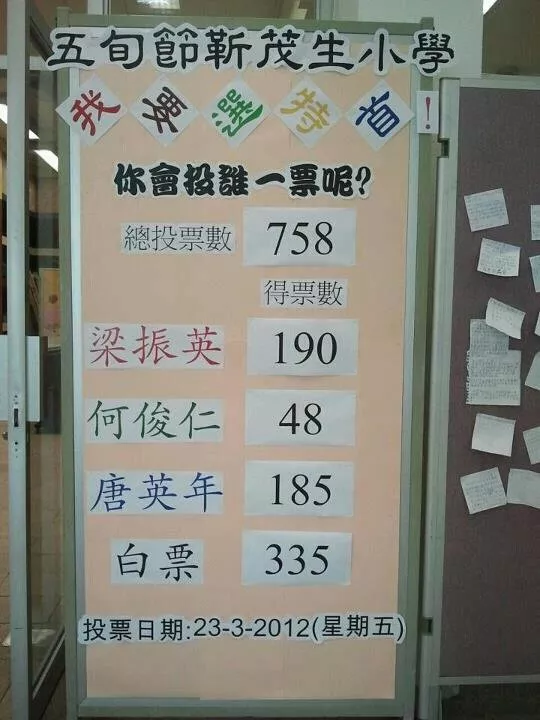 五旬節靳茂生小學
我要選特首!
你會投誰一票呢?
總投票數 758
得票數
梁振英 190
何俊仁 48
唐英年 185
白票 335
投票日期:23-3-2012(星期五)